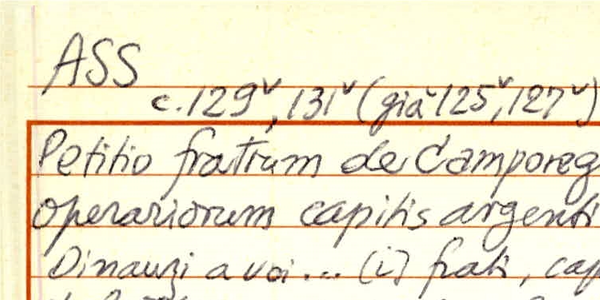 ASS
c. 129v, 131v (già 125v, 127v)
Petitio fratrum de Camporeg
operariorum capitis argenti
Dinanzi a voi... (i) frati, cap